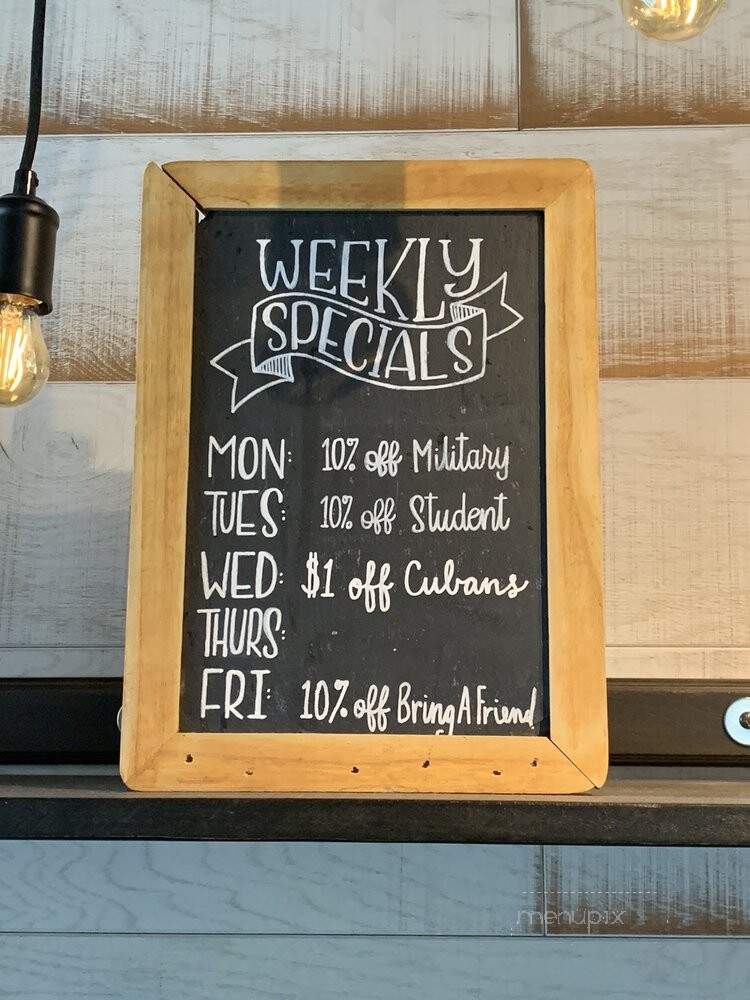 WEEKLY
SPECIALS
MON: 10% off Military
TUES: 10% off Student
WED: $1 off Cubans
THURS:
FRI: 10% off Bring A Friend
menupix